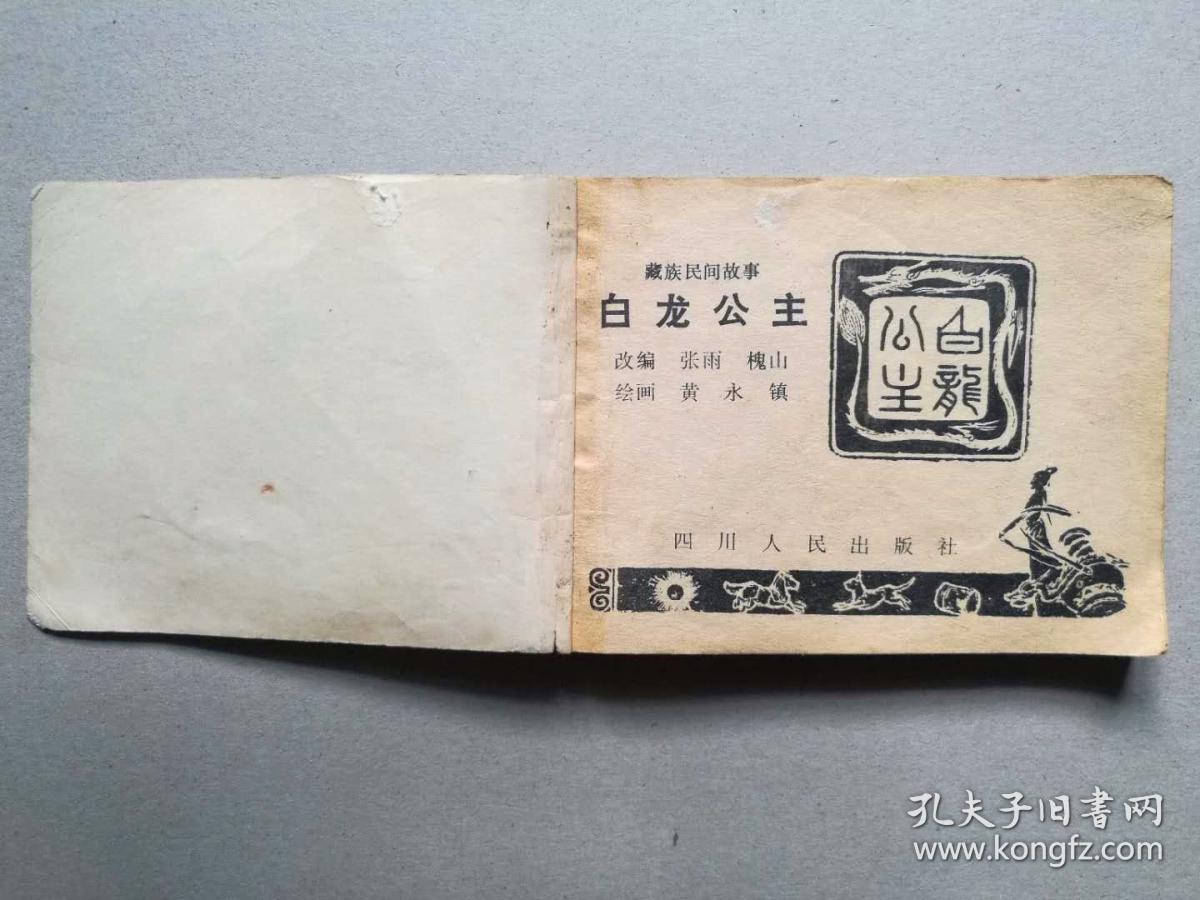 藏族民间故事
白龙公主
改编 张雨 槐山
绘画 黄永镇
白龍
公主
四川人民出版社
孔夫子旧書网
www.kongfz.com